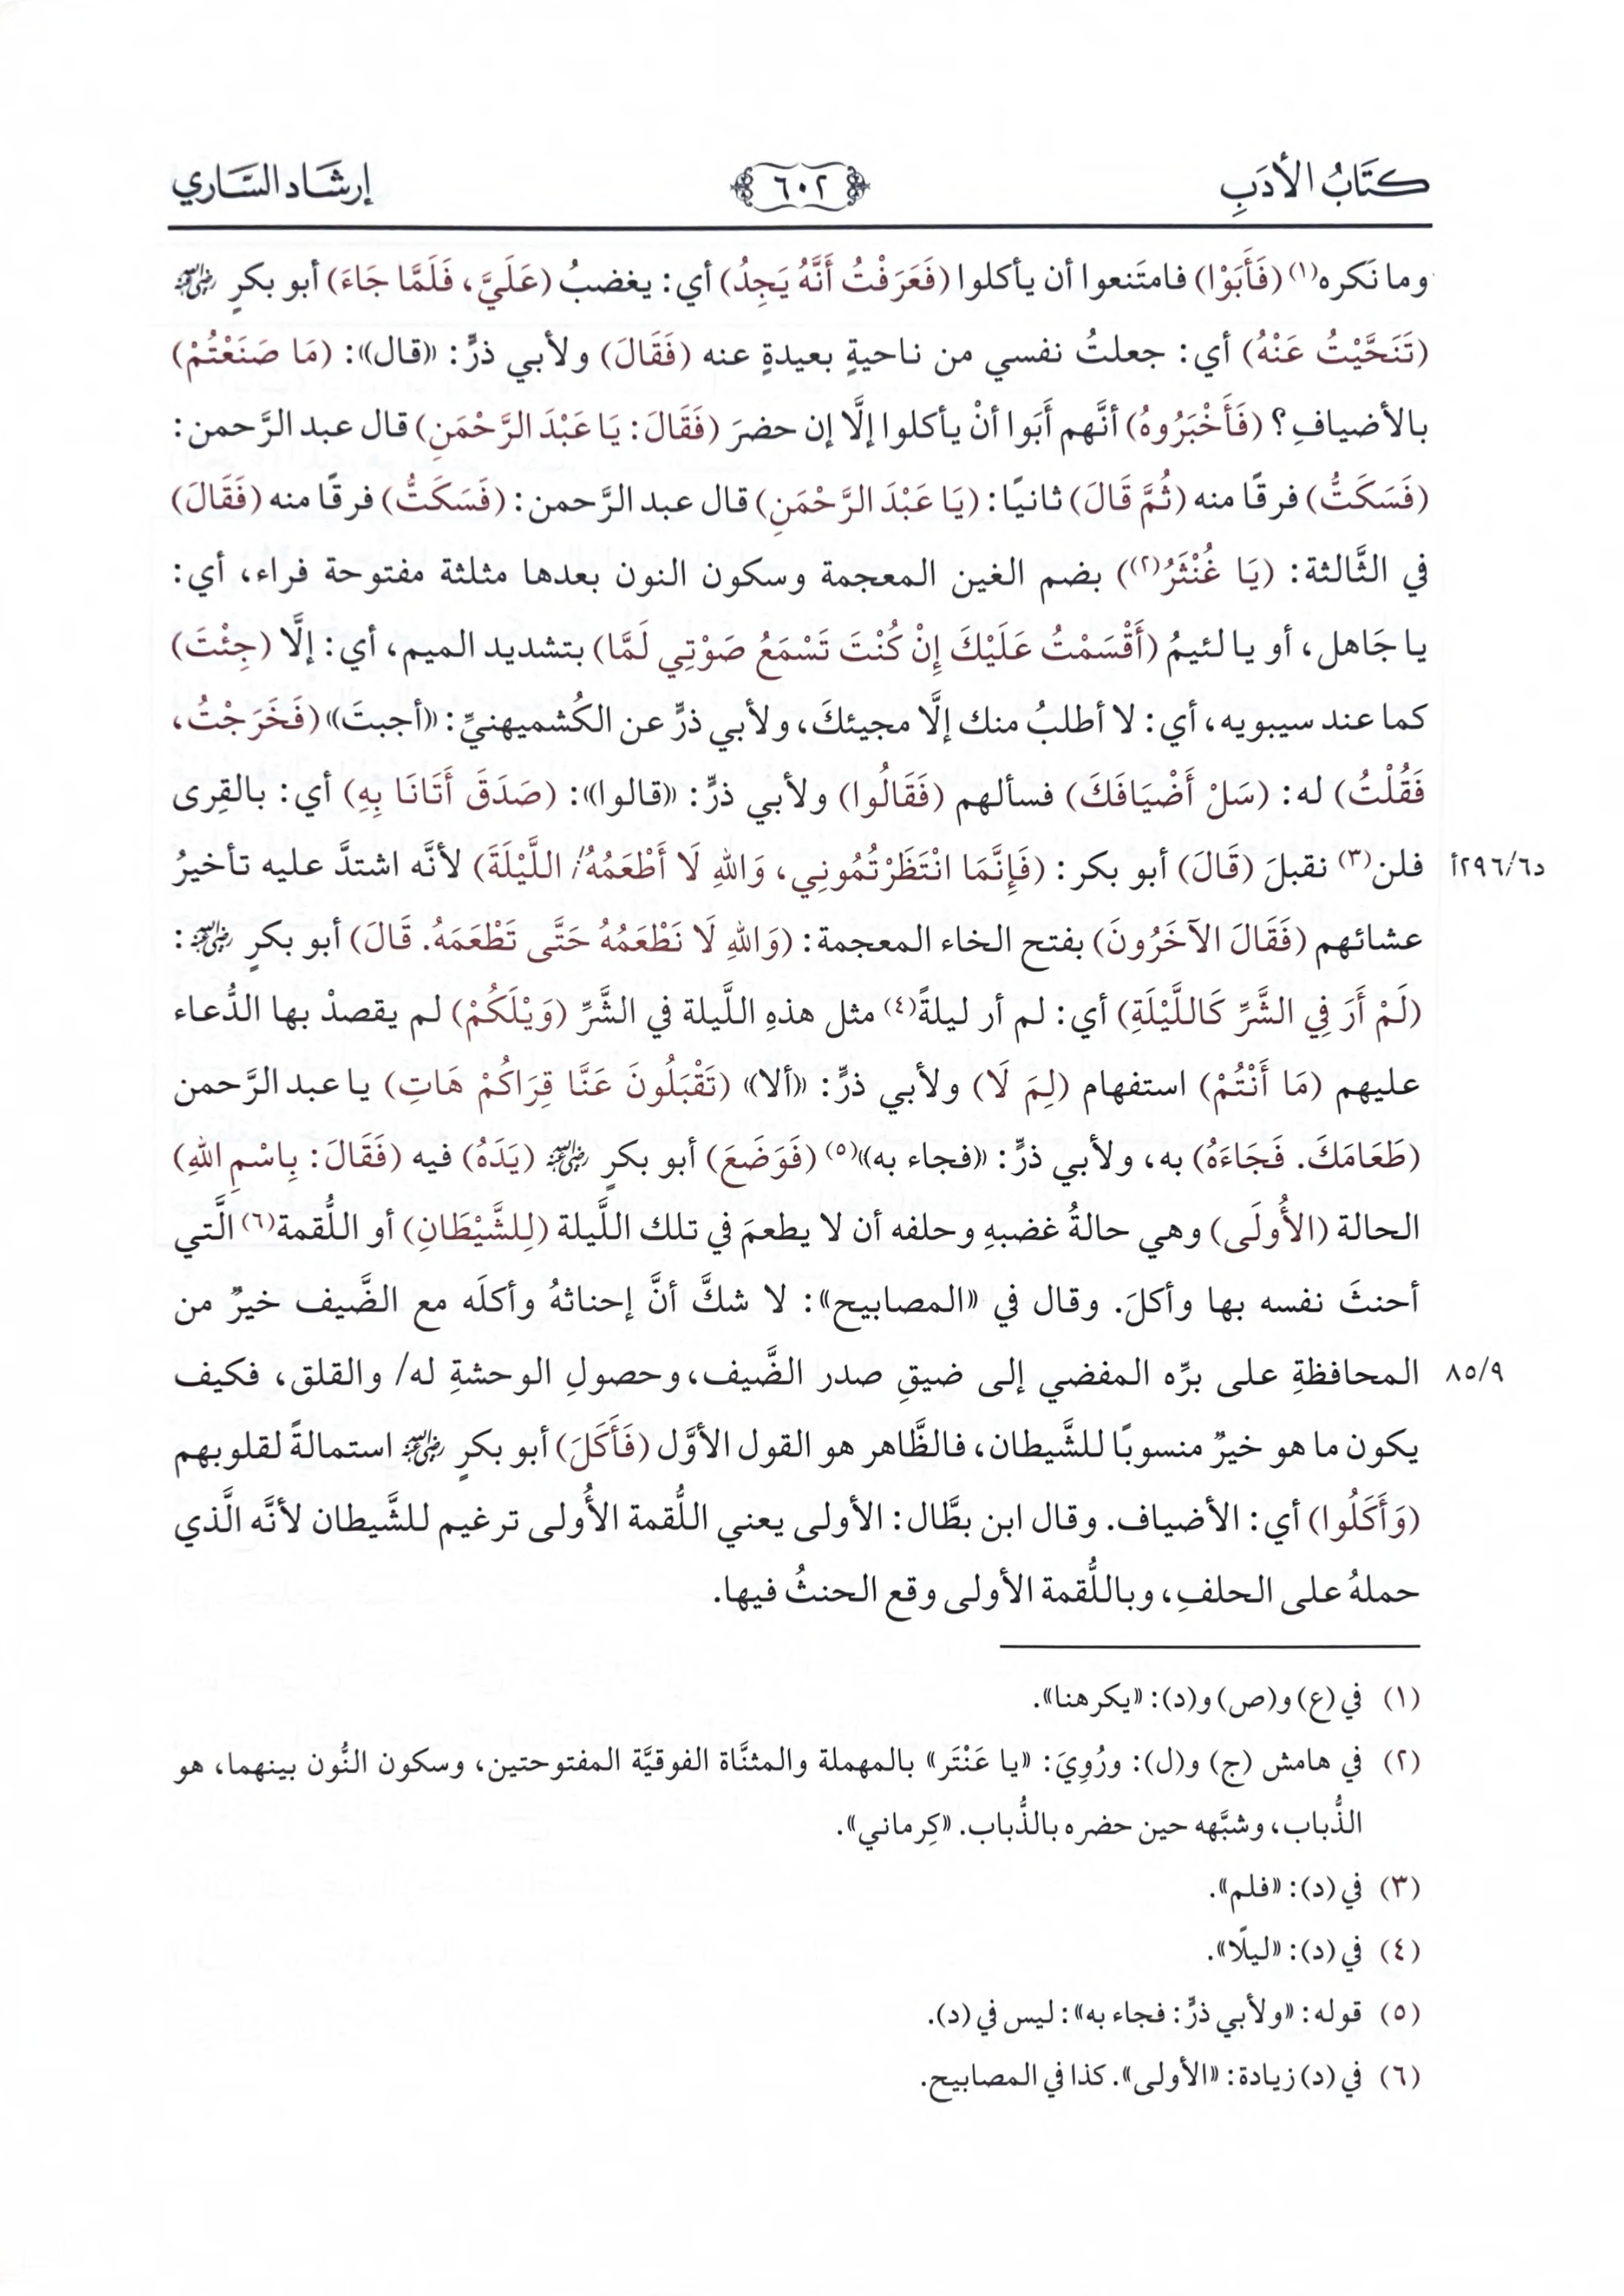 كِتَابُ الأَدَبِ
٦٠٢
إرشَاد السَّاري
وما نَكره(١) (فَأَبَوْا) فامتَنعوا أن يأكلوا (فَعَرَفْتُ أَنَّهُ يَجِدُ) أي: يغضبُ (عَلَيَّ، فَلَمَّا جَاءَ) أبو بكرٍ ﵁
(تَنَحَّيْتُ عَنْهُ) أي: جعلتُ نفسي من ناحيةٍ بعيدةٍ عنه (فَقَالَ) ولأبي ذرٍّ: «قال»: (مَا صَنَعْتُمْ)
بالأضيافِ؟ (فَأَخْبَرُوهُ) أنَّهم أَبَوا أنْ يأكلوا إلَّا إن حضرَ (فَقَالَ: يَا عَبْدَ الرَّحْمَنِ) قال عبد الرَّحمن:
(فَسَكَتُّ) فرقًا منه (ثُمَّ قَالَ) ثانيًا: (يَا عَبْدَ الرَّحْمَنِ) قال عبد الرَّحمن: (فَسَكَتُّ) فرقًا منه (فَقَالَ)
في الثَّالثة: (يَا غُنْثَرُ(٢)) بضم الغين المعجمة وسكون النون بعدها مثلثة مفتوحة فراء، أي:
يا جَاهل، أو يا لئيمُ (أَقْسَمْتُ عَلَيْكَ إِنْ كُنْتَ تَسْمَعُ صَوْتِي لَمَّا) بتشديد الميم، أي: إلَّا (جِئْتَ)
كما عند سيبويه، أي: لا أطلبُ منك إلَّا مجيئكَ، ولأبي ذرٍّ عن الكُشميهنيِّ: «أجبتَ» (فَخَرَجْتُ،
فَقُلْتُ) له: (سَلْ أَضْيَافَكَ) فسألهم (فَقَالُوا) ولأبي ذرٍّ: «قالوا»: (صَدَقَ أَتَانَا بِهِ) أي: بالقِرى
فلن(٣) نقبلَ (قَالَ) أبو بكر: (فَإِنَّمَا انْتَظَرْتُمُونِي، وَاللهِ لَا أَطْعَمُهُ/ اللَّيْلَةَ) لأنَّه اشتدَّ عليه تأخيرُ
د٢٩٦/٦أ
عشائهم (فَقَالَ الآخَرُونَ) بفتح الخاء المعجمة: (وَاللهِ لَا نَطْعَمُهُ حَتَّى تَطْعَمَهُ. قَالَ) أبو بكرٍ ﵁:
(لَمْ أَرَ فِي الشَّرِّ كَاللَّيْلَةِ) أي: لم أر ليلةً(٤) مثل هذهِ اللَّيلة في الشَّرِّ (وَيْلَكُمْ) لم يقصدْ بها الدُّعاء
عليهم (مَا أَنْتُمْ) استفهام (لِمَ لَا) ولأبي ذرٍّ: «ألا» (تَقْبَلُونَ عَنَّا قِرَاكُمْ هَاتِ) يا عبد الرَّحمن
(طَعَامَكَ. فَجَاءَهُ) به، ولأبي ذرٍّ: «فجاء به»(٥) (فَوَضَعَ) أبو بكرٍ ﵁ (يَدَهُ) فيه (فَقَالَ: بِاسْمِ اللهِ)
الحالة (الأُولَى) وهي حالةُ غضبهِ وحلفه أن لا يطعمَ في تلك اللَّيلة (لِلشَّيْطَانِ) أو اللُّقمة(٦) الَّتي
أحنثَ نفسه بها وأكلَ. وقال في «المصابيح»: لا شكَّ أنَّ إحناثهُ وأكلَه مع الضَّيف خيرٌ من
المحافظةِ على برِّه المفضي إلى ضيقِ صدر الضَّيف، وحصولِ الوحشةِ له/ والقلق، فكيف
٨٥/٩
يكون ما هو خيرٌ منسوبًا للشَّيطان، فالظَّاهر هو القول الأوَّل (فَأَكَلَ) أبو بكرٍ ﵁ استمالةً لقلوبهم
(وَأَكَلُوا) أي: الأضياف. وقال ابن بطَّال: الأولى يعني اللُّقمة الأُولى ترغيم للشَّيطان لأنَّه الَّذي
حملهُ على الحلفِ، وباللُّقمة الأولى وقع الحنثُ فيها.
(١) في (ع) و(ص) و(د): «يكرهنا».
(٢) في هامش (ج) و(ل): ورُوِيَ: «يا عَنْتَر» بالمهملة والمثنَّاة الفوقيَّة المفتوحتين، وسكون النُّون بينهما، هو
الذُّباب، وشبَّهه حين حضره بالذُّباب. «كِرماني».
(٣) في (د): «فلم».
(٤) في (د): «ليلًا».
(٥) قوله: «ولأبي ذرٍّ: فجاء به»: ليس في (د).
(٦) في (د) زيادة: «الأولى». كذا في المصابيح.